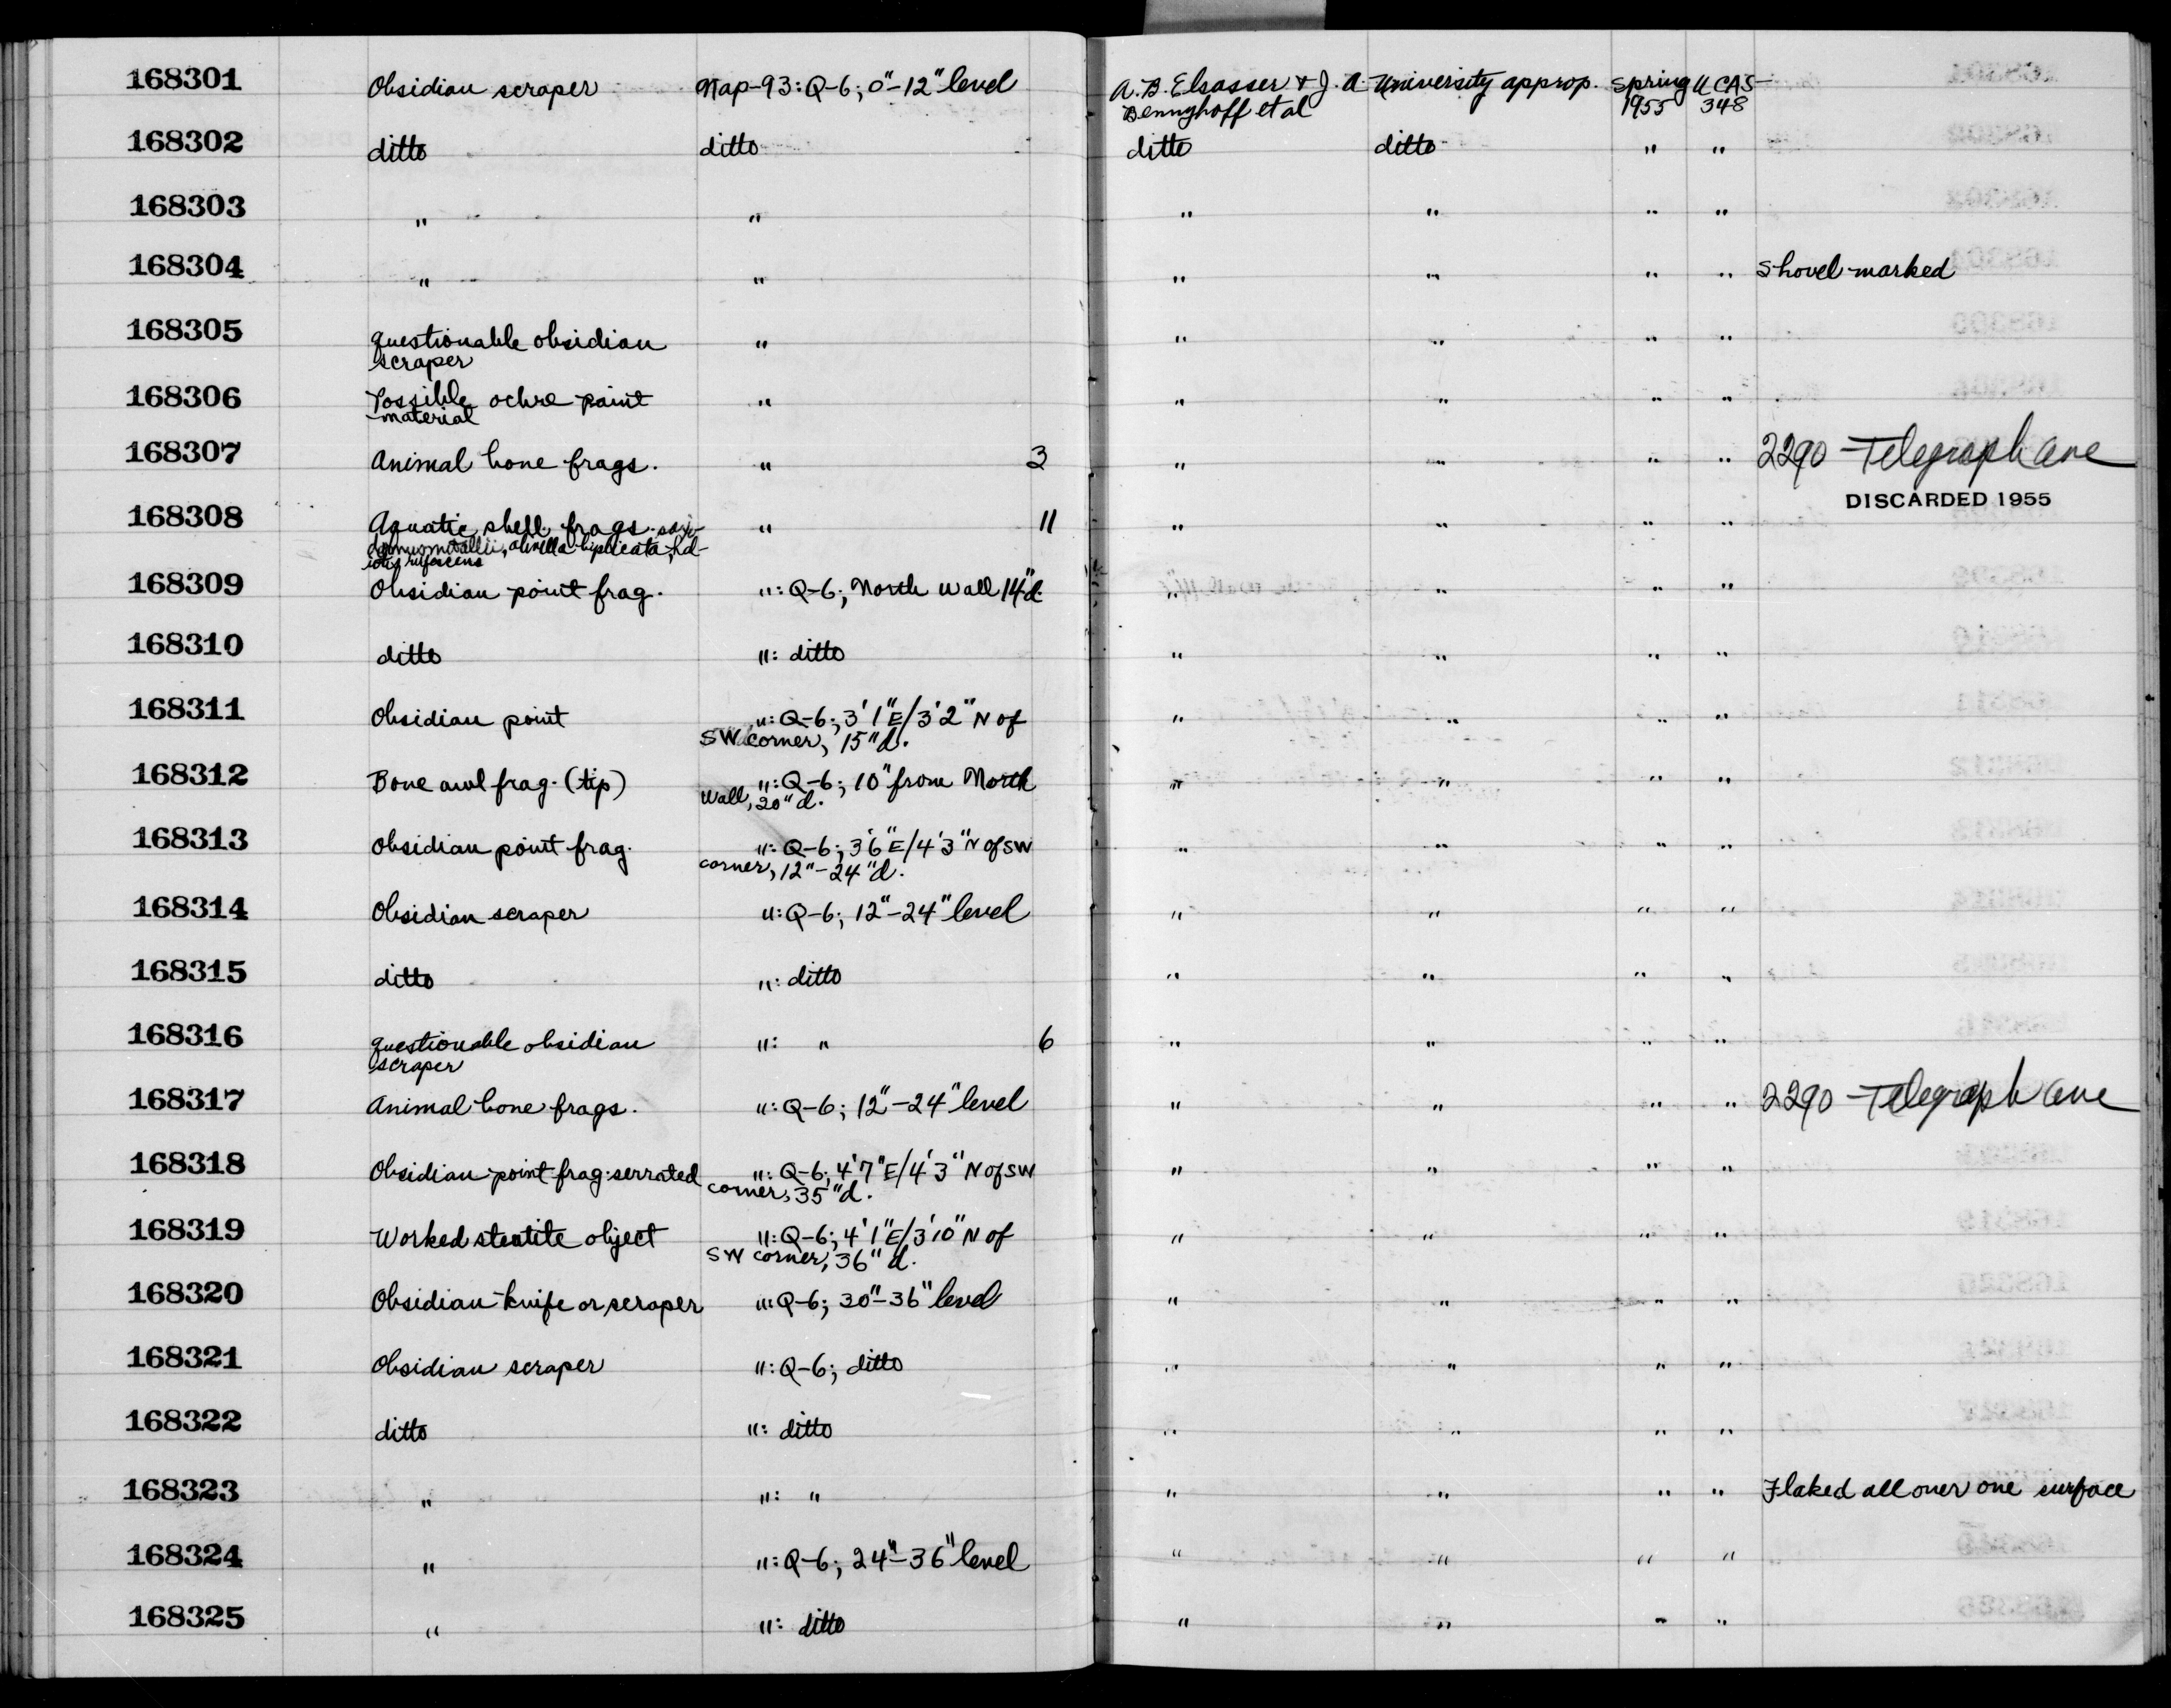 168301 Obsidian scraper Nap-93: Q-6; 0"-12" level A. B. Elsasser & J. A. University approp. Spring UCAS-
Bennyhoff et al 1955 348
168302 ditto ditto ditto ditto " "
168303 " " " " " "
168304 " " " " " " Shovel-marked
168305 questionable obsidian " " " " "
scraper
168306 Possible ochre paint " " " " "
material
168307 Animal bone frags. " 3 " " " " 2290 Telegraph Ave
DISCARDED 1955
168308 Aquatic shell frags. saxi- " 11 " " " "
domus nuttallii, olivella biplicata, hal-
iotis rufescens
168309 Obsidian point frag. ": Q-6; North wall 14"d. " " " "
168310 ditto ": ditto " " " "
168311 Obsidian point ": Q-6; 3'1"E/3'2"N of " " " "
SW corner, 15"d.
168312 Bone awl frag. (tip) ": Q-6; 10" from North " " " "
Wall, 20"d.
168313 Obsidian point frag. ": Q-6; 3'6"E/4'3"N of SW " " " "
corner, 12"-24"d.
168314 Obsidian scraper ": Q-6; 12"-24" level " " " "
168315 ditto ": ditto " " " "
168316 questionable obsidian ": " 6 " " " "
scraper
168317 Animal bone frags. ": Q-6; 12"-24" level " " " " 2290 Telegraph Ave
168318 Obsidian point frag. serrated ": Q-6; 4'7"E/4'3"N of SW " " " "
corner, 35"d.
168319 Worked steatite object ": Q-6; 4'1"E/3'10"N of " " " "
SW corner, 36"d.
168320 Obsidian knife or scraper ": Q-6; 30"-36" level " " " "
168321 Obsidian scraper ": Q-6; ditto " " " "
168322 ditto ": ditto " " " "
168323 " ": " " " " " Flaked all over one surface
168324 " ": Q-6; 24"-36" level " " " "
168325 " ": ditto " " " "